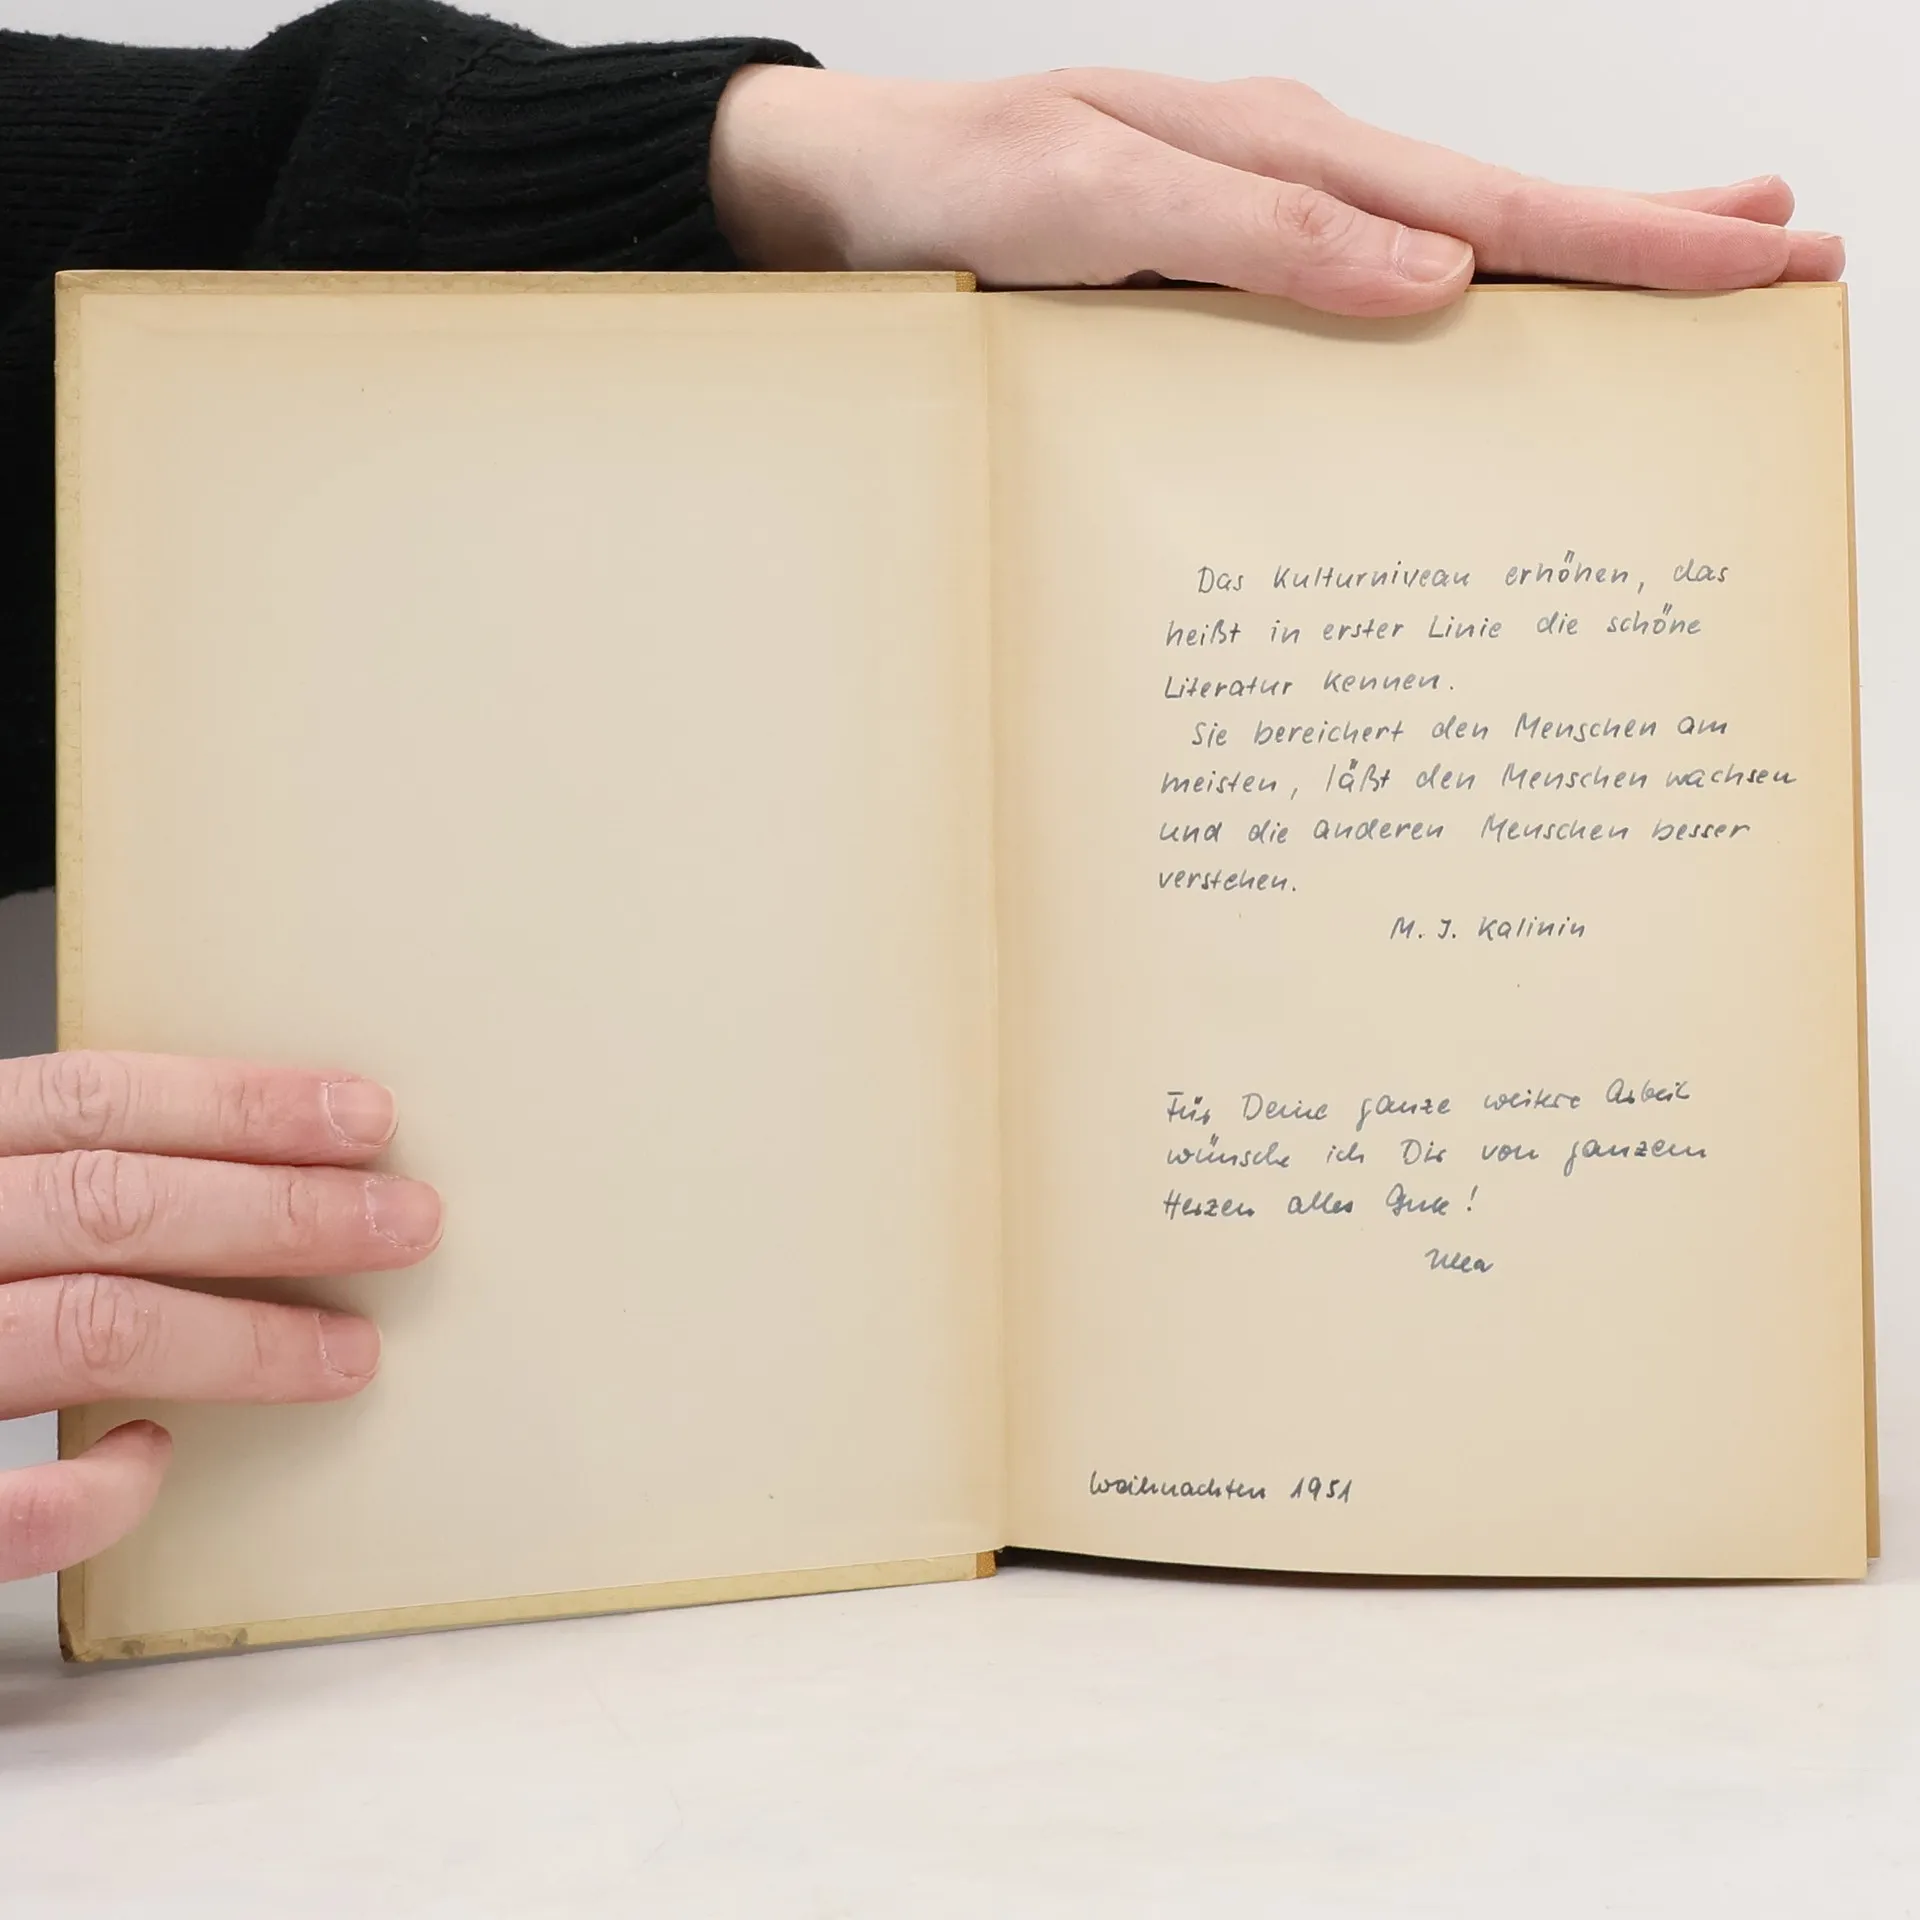 Das Kulturniveau erhöhen, das
heißt in erster Linie die schöne
Literatur kennen.
Sie bereichert den Menschen am
meisten, läßt den Menschen wachsen
und die anderen Menschen besser
verstehen.
M. J. Kalinin
Für Deine ganze weitere Arbeit
wünsche ich Dir von ganzem
Herzen alles Gute!
Ulla
Weihnachten 1951